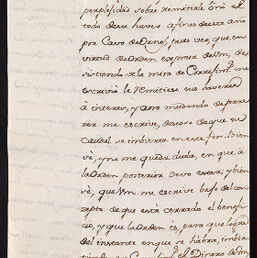 perplesidad sobre remitirle ô nò el
todo de su haver a fines de este año
por Carro de Ornos, pues veo, que en
virtud de Orden expresa de Vm, de-
sistiendo de la mira de
me escrivió le remitiese sus haveres
à interes, y aora mudando de pare-
zer me escrive, deseoso de que su
caudal se imbierta en esta fin. Bien
vè, y no me queda duda, en que à
la Orden posterior devo estar, y bien
vè, que Vm. me escrive bajo del con-
zepto de que està cerrado el benefi-
cio, y que la Orden es, para que logre
del instante en que se habra,
Dinero de Vm.